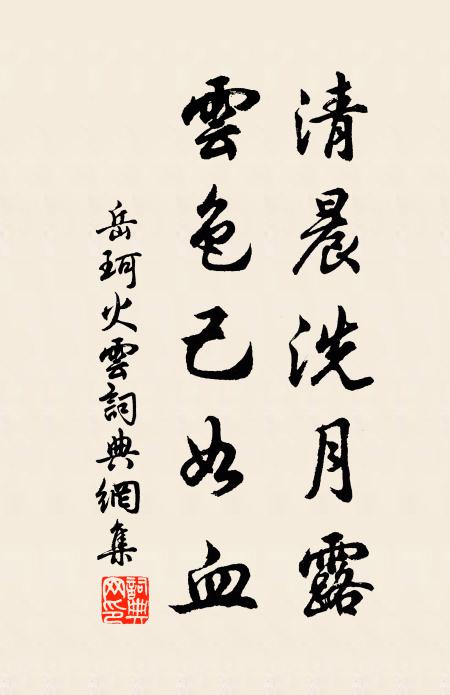 清晨洗月露
雲色已如血
岳珂火雲詞典網集
詞典網印